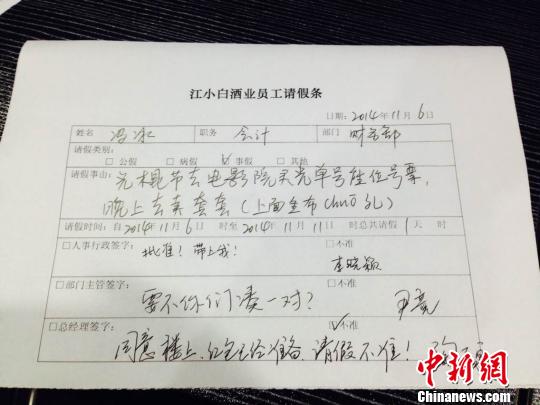 江小白酒业员工请假条
日期：2014年11月6日
姓名 冯冰 职务 会计 部门 财务部
请假类别：
□公假 □病假 ☑事假 □其他
请假事由：光棍节去电影院买光单号座位号票，
晚上去卖套套（上面全布chuō孔）
请假时间：自2014年11月6日 时至2014年11月11日 时总共请假1天 时
□人事行政签字： □不准
批准！带上我！ 李晓颖
□部门主管签字： □不准
要不你们凑一对？ 尹亮
□总经理签字： ☑不准
同意楼上，红包已经准备，请假不准！
中新网
www.chinanews.com